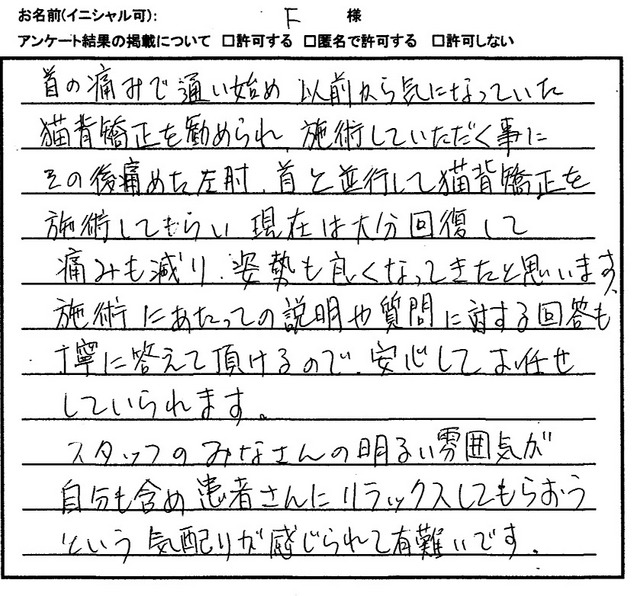 お名前(イニシャル可): F 様
アンケート結果の掲載について □許可する □匿名で許可する □許可しない
首の痛みで通い始め 以前から気になっていた
猫背矯正を勧められ、施術していただく事に
その後痛めた左肘、首と並行して猫背矯正を
施術してもらい 現在は大分回復して
痛みも減り、姿勢も良くなってきたと思います。
施術にあたっての説明や質問に対する回答も
丁寧に答えて頂けるので、安心してお任せ
していられます。
スタッフのみなさんの明るい雰囲気が
自分も含め患者さんにリラックスしてもらおう
という気配りが感じられて有難いです。